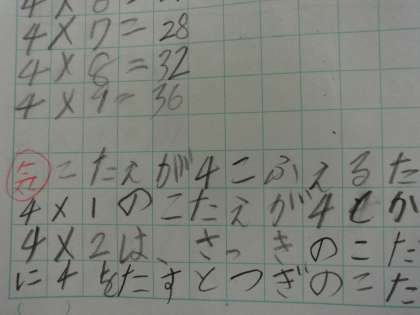 4×7=28
4×8=32
4×9=36
気こたえが4こふえるた
4×1のこたえが4とか
4×2は、さっきのこた
に4をたすとつぎのこた